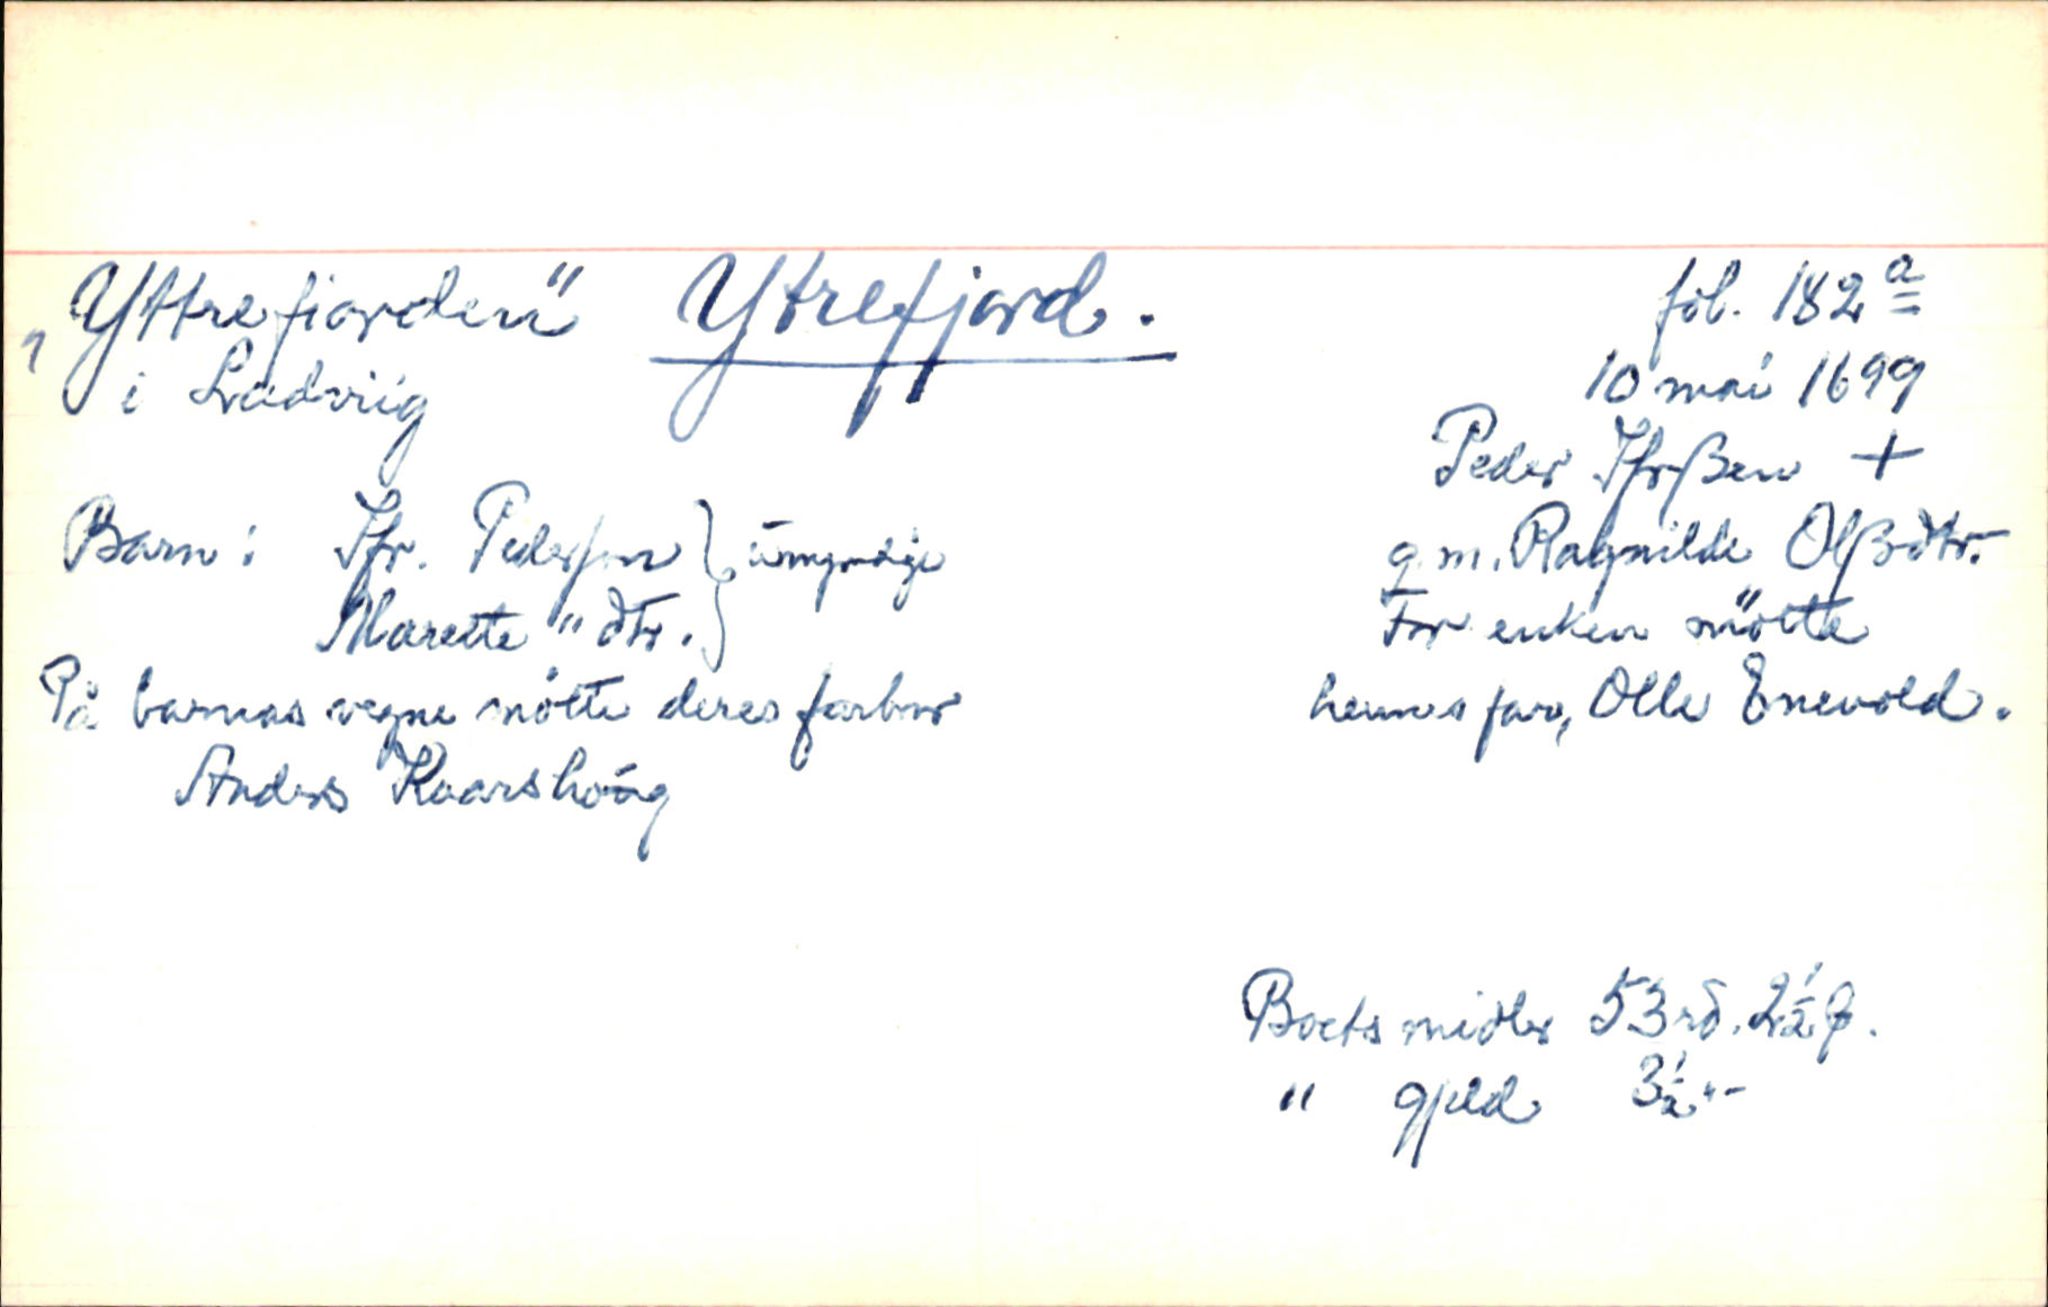 „Yttrefiorden" Ytrefjord.
i Ladviig
fol. 182 a
10 mai 1699
Peder Ifrßen +
g.m. Ragnilde Olßdtr.
For enken mötte
hennes far, Olle Enevold.
Barn: Ifr. Pederssøn } umyndige
Marette " dtr.
På barnas vegne mötte deres farbror
Anders Kaarshöug
Boets midler 53 rd. 2½ ꝑ.
" gjeld 3½ "-